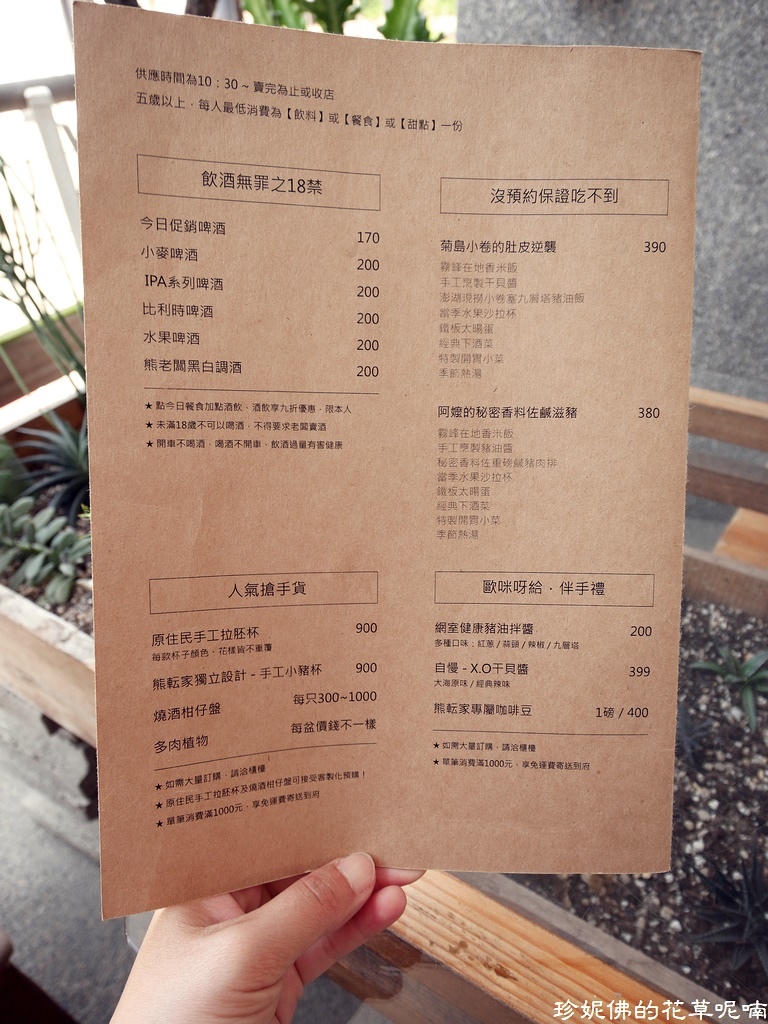 供應時間為10：30 ~ 賣完為止或收店
五歲以上，每人最低消費為【飲料】或【餐食】或【甜點】一份
飲酒無罪之18禁
今日促銷啤酒 170
小麥啤酒 200
IPA系列啤酒 200
比利時啤酒 200
水果啤酒 200
熊老闆黑白調酒 200
★ 點今日餐食加點酒飲、酒飲享九折優惠，限本人
★ 未滿18歲不可以喝酒，不得要求老闆賣酒
★ 開車不喝酒，喝酒不開車、飲酒過量有害健康
沒預約保證吃不到
菊島小卷的肚皮逆襲 390
霧峰在地香米飯
手工烹製干貝醬
澎湖現撈小卷塞九層塔豬油飯
當季水果沙拉杯
鐵板太陽蛋
經典下酒菜
特製開胃小菜
季節熱湯
阿嬤的秘密香料佐鹹滋豬 380
霧峰在地香米飯
手工烹製豬油醬
秘密香料佐重磅鹹豬肉排
當季水果沙拉杯
鐵板太陽蛋
經典下酒菜
特製開胃小菜
季節熱湯
人氣搶手貨
原住民手工拉胚杯 900
每款杯子顏色、花樣皆不重覆
熊転家獨立設計 - 手工小豬杯 900
燒酒柑仔盤 每只300~1000
多肉植物 每盆價錢不一樣
★ 如需大量訂購，請洽櫃檯
★ 原住民手工拉胚杯及燒酒柑仔盤可接受客製化預購！
★ 單筆消費滿1000元，享免運費寄送到府
歐咪呀給．伴手禮
網室健康豬油拌醬 200
多種口味：紅蔥 / 蒜頭 / 辣椒 / 九層塔
自慢 - X.O干貝醬 399
大海原味 / 經典辣味
熊転家專屬咖啡豆 1磅 / 400
★ 如需大量訂購，請洽櫃檯
★ 單筆消費滿1000元，享免運費寄送到府
珍妮佛的花草呢喃